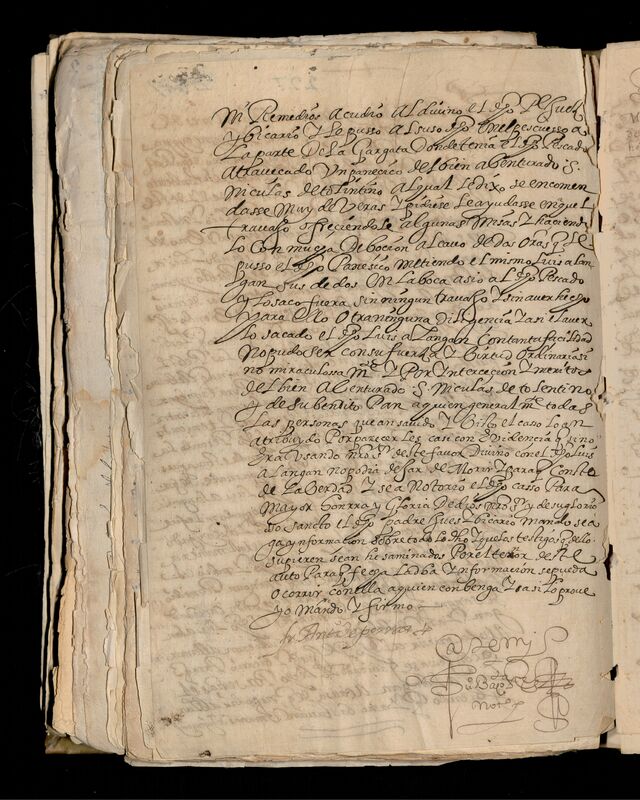 mi Remedios acudio al divino el dho Pe Juez
y bicario y le pusso al suso dho en el pescuesso a
la parte de la garganta donde tenia el dho Pescado
atravecado Un panecico del bien abenturado S.
Niculas de tolintino al qual le dixo se encomen
dasse muy de veras y pidiese le ayudasse en aquel
travajo ofreciendole algunas misas y haciendo
lo con mucha deboçion al cavo de dos oras q se le
pusso el dho Panesico metiendo el mismo Luis alan
gan sus dedos en la boca asio al dho Pescado
y lo saco fuera sin ningun travajo y sin aver hecho
Para ello otra ninguna diligencia y asi el aver
lo sacado el dho Luis alangan con tanta facilidad
No pudo ser con su fuerza y birtud ordinaria si
no miraculosa mte y Por yntercecion y meritos
del bien abenturado S. Niculas de tolentino
y de su bendito Pan a quien general mte todas
las personas que an savido y bisto el caso lo an
atribuydo Por parecer les casi con evidencia q si no
era usando nro Sr deste favor divino con el dho Luis
alangan no podia dejar de morir y para q conste
de la berdad y sea notorio el dho casso Para
mayor honrra y gloria de dios nro Sr y de su glorio
so sancto el dho padre Jues y bicario mando se a
ga ynformacion sobre todo lo dho y que los testigos q dello
supieren sean hesaminados Por el tenor deste
auto Para q fecha la dha ynformacion se pueda
ocorrir con ella a quien conbenga y asi lo prove
yo mando y firmo
fr. Antº de
Ante mi
Notº